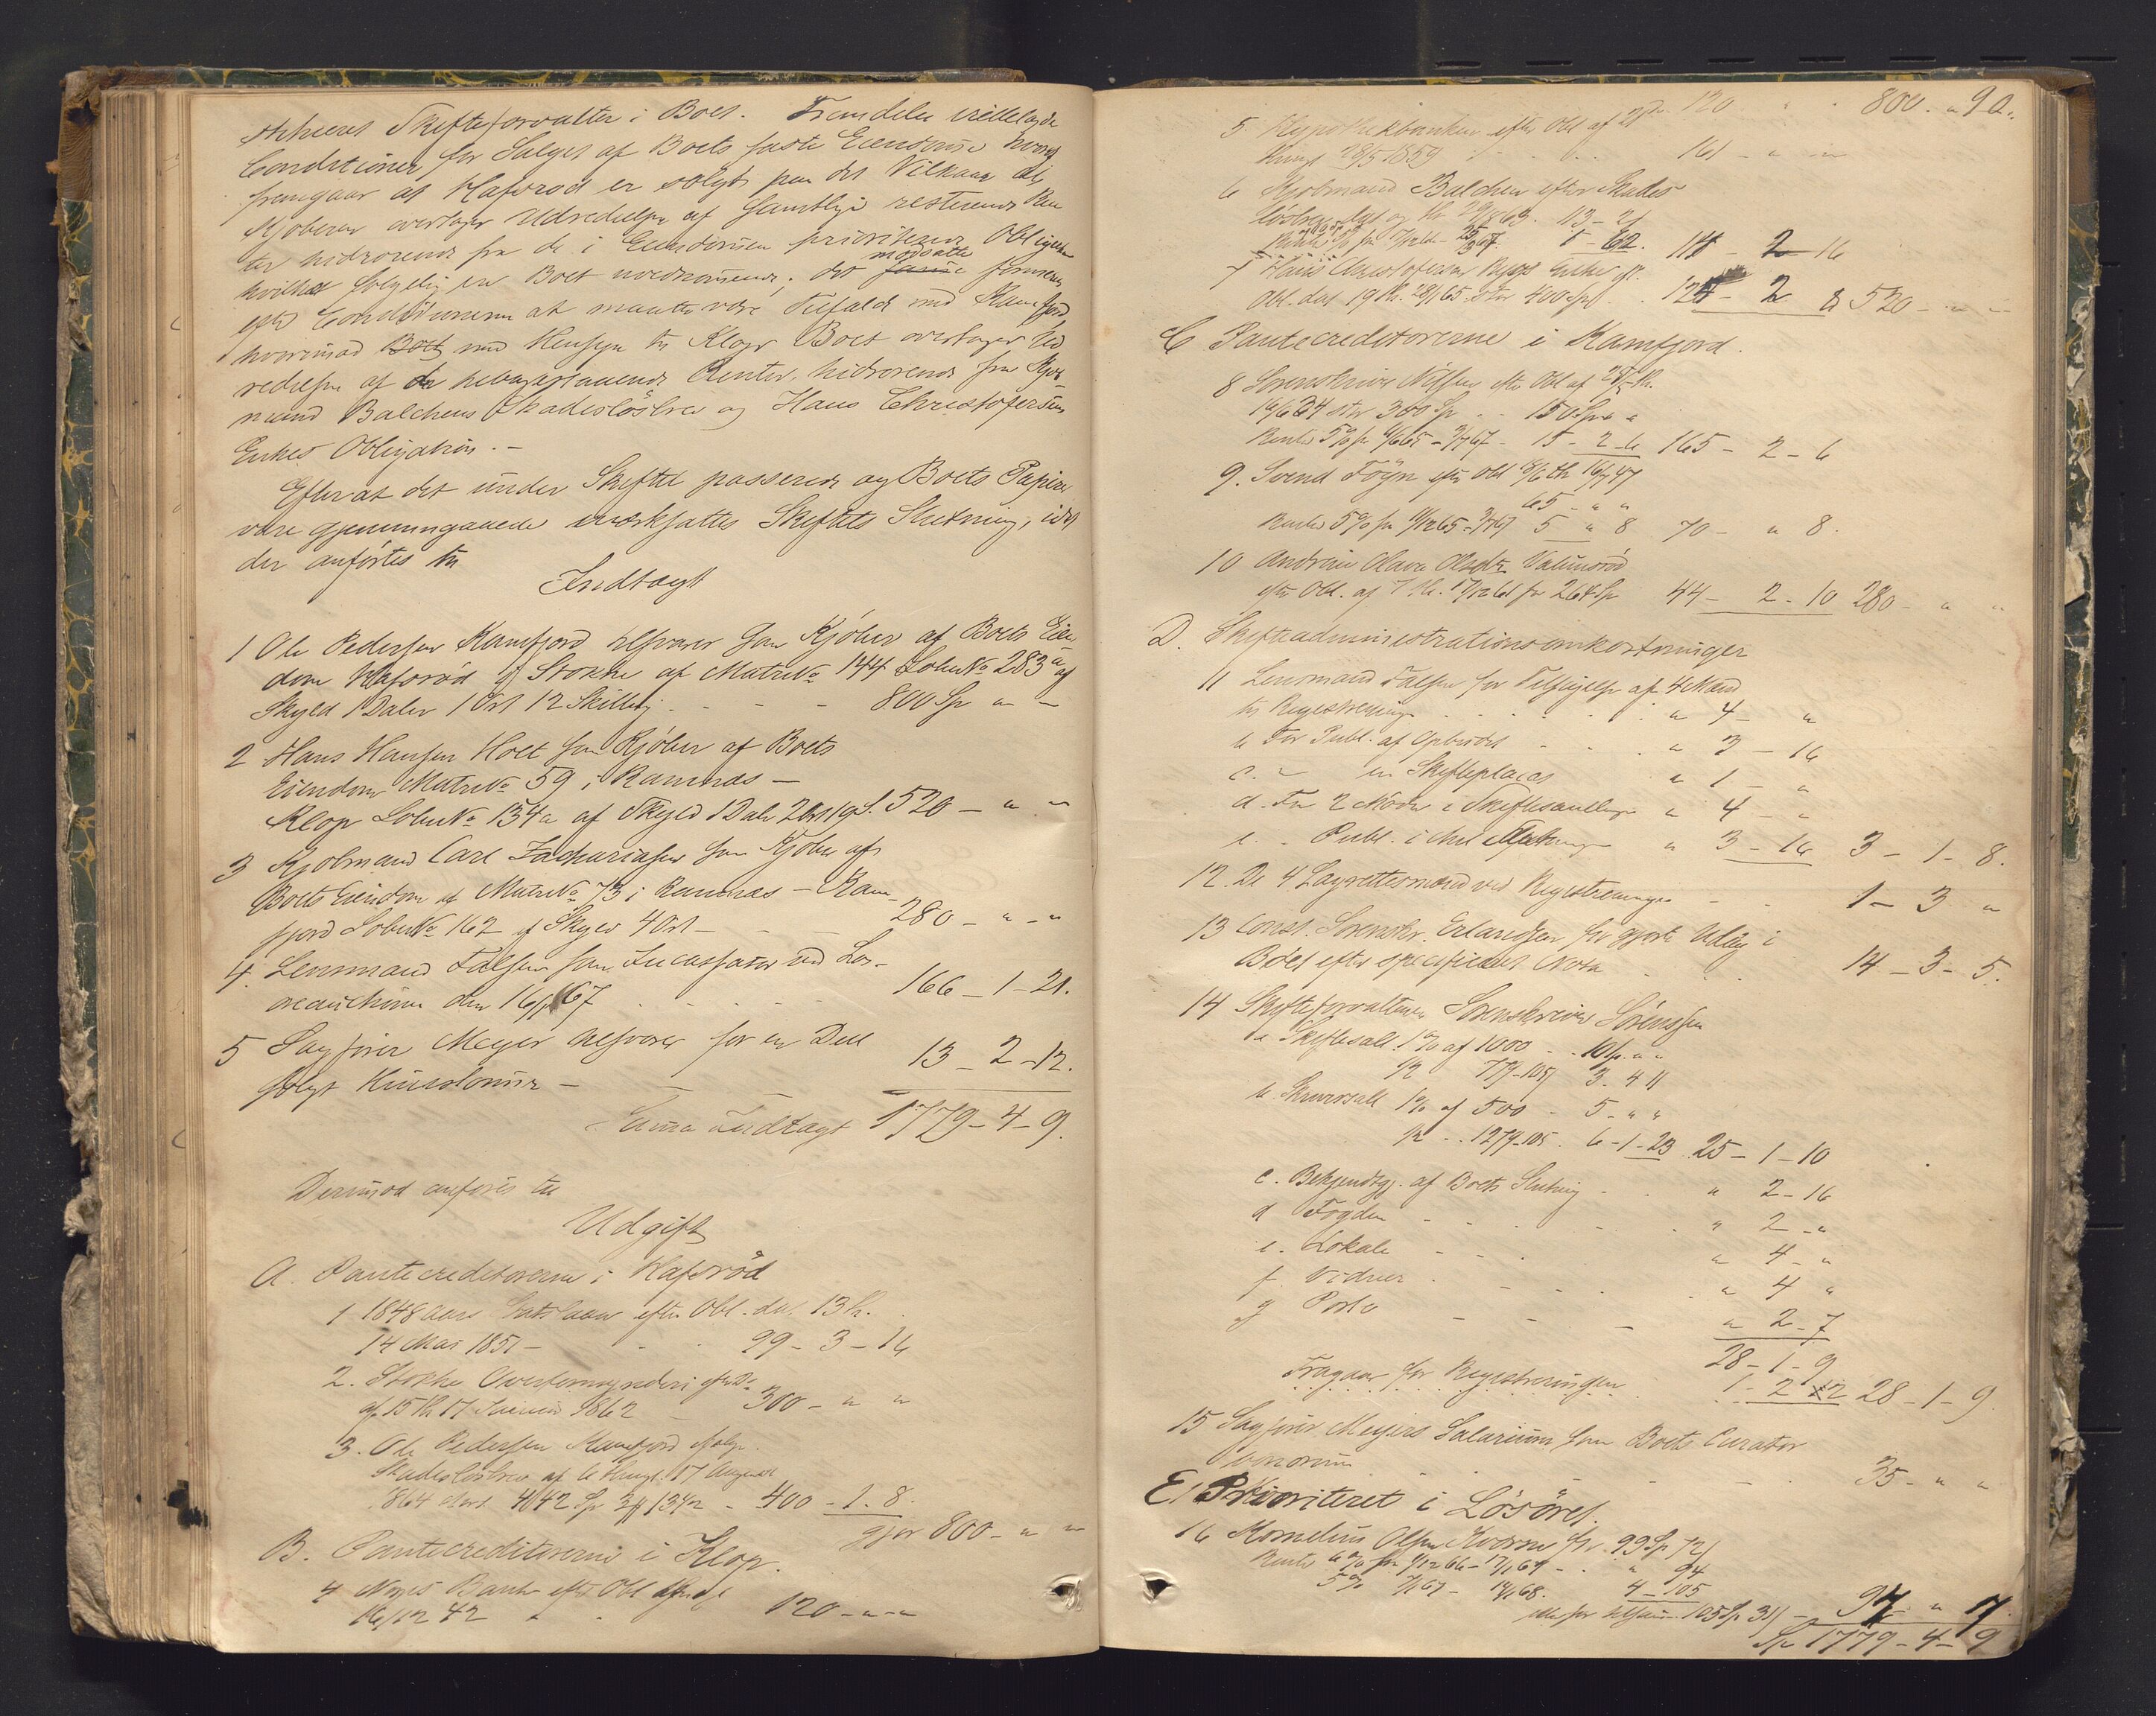 Skifteforvalter i Boet. Fremdeles
Conditioner for Salget af Boets faste Eiendomme hvoraf
fremgaar at Hafsrød er solgt paa det Vilkaar at
Kjøberen overtager Udredelsen af samtlige resterende Ren
ter hidrørende fra de i Eiendommen prioriterede Obligatio
hvilket følgelig er Boet uvedkommende; det modsatte
efter Conditionerne at maatte være Tilfældet med Ramfjord,
hvorimod med Hensyn til Klop Boet overtager Ud
redelsen af de hidrørende fra Kjøb
mand Balchens Skadesløsbrev og Hans Christofersens
Enkes Obligation. -
Efter at det under Skiftet passerede og Boets Papirer
vare gjennemgaaede iværksattes Skiftets Slutning, idet
der anførtes til
Indtægt
1 Ole Pedersen Ramfjord tilsvarer som Kjøber af Boets Eien
dom Hafsrød i Stokke af Matr No 144 Lobe No 283 a af
Skyld 1 Daler 1 Ort 12 Skilling - - - 800 Sp " "
2 Hans Hansen Holt som Kjøber af Boets
Eiendom Matr No 59 i Ramnæs -
Klop Lobe No 134 a af Skyld 1 Daler 2 Ort 19 S. 520 - " - "
3 Kjøbmand Carl Zachariasen som Kjøber af
Boets Eiendom af Matr No 73 i Ramnæs - Ram-
fjord Lobe No 162 af Skyld 4 Ort - - - 280 - " - "
4. Lensmand Falsen som Incassator ved Løs-
øreauctionen den 16/7 67 - - - 166 - 1 - 21.
5 Sagfører Meyer tilsvarer for en Deel
solgt - 13 - 2 - 12.
Summa Indtægt 1779 - 4 - 9.
Derimod anføres til
Udgift
A. Pantecreditorerne i Hafsrød
1 1848 aars Statslaan efter Obl. dat. 13 th.
14 Mai 1851 - 99 - 3 - 16
2. Stokke Overformynderi efter do
af 15 th 17 1862 - 300 - " "
3. Ole Pedersen Ramfjord ifølge
Skadesløsbrev af 6 th 17 August
1864 stort 4042 Sp 13 1/2 - 400 - 1 - 8.
gjør 800 - " - "
B. Pantecreditorerne i Klop.
4 Norges Bank efter Obl
16/12 42 - 120 - " - "
120 800 - " 90 "
5 Hypothekbanken efter Obl af
28/5 1859 161 - " - "
6 Kjøbmand Balchen efter Skades
løsbrev 113 - 21
1 - 62. 114 - 2 16
7 Hans Christofersens Enke
Obl. dat 19 th. 28/1 65 stor 400 Sp - 124 - 2 8 520 - " - "
C Pantecreditorerne i Ramfjord.
8 Sorenskriver Nissen efter Obl af
16/6 64 stor 300 Sp - 150 Sp " "
Renter 5% fra - 15 - 2 - 6 165 - 2 - 6
9. Svend Føyn efter Obl
65 - " "
Renter 5% fra 5 " 8 70 - " 8.
10 Andrine Olava Olsdtr.
efter Obl. af 44 - 2 - 10 280 - " "
D. Skifteadministrationsomkostninger
11 Lensmand Falsen for Tilsigelse af 4 Mænd
til Registrering " 4 - "
b For Publ. af Opbudet - " 3 - 16
c. - en Skifteplacat " 1 - "
d. For 2 Møder i Skiftesamling " 4 - "
e. - Publ. i " 3 - 16 3 - 1 - 8.
12. De 4 Lagrettesmænd ved Registreringen - - 1 - 3 "
13 Const. Sorenskr. Erlandsen for gjorte Udlæg i
Boet efter specificeret Nota - 14 - 3 - 5.
14 Skifteforvalteren Sorenskriver Sörenssen
a Skiftesall. 1% af 1000 - 10 Sp. " "
1/2 779-105 3 - 4 11
b. Skriversall 1% af 500 - 5 - " "
1/2 - 1279-105 6 - 1 - 23 25 - 1 - 10
c. Bekjendtgj. af Boets Slutning - " 2 - 16
d Fogden - " 2 - "
e. Lokale - " 4 - "
f. Vidner - " 4 "
g Porto - " 2 - 7
28 - 1 - 9
Fragaar for Registreringen 1 - 2 12 28 - 1 - 9.
15 Sagfører Meyers Salarium som Boets Curator
bonorum - 35 - " "
E, Prioriteret i Lösöret.
16 Kornelius Olsen 99 Sp 72
Renter 6% fra 1/12 66 - " 94
5% 4 - 105
105 Sp 31 - 97 " 17.
Sp 1779 - 4 - 9